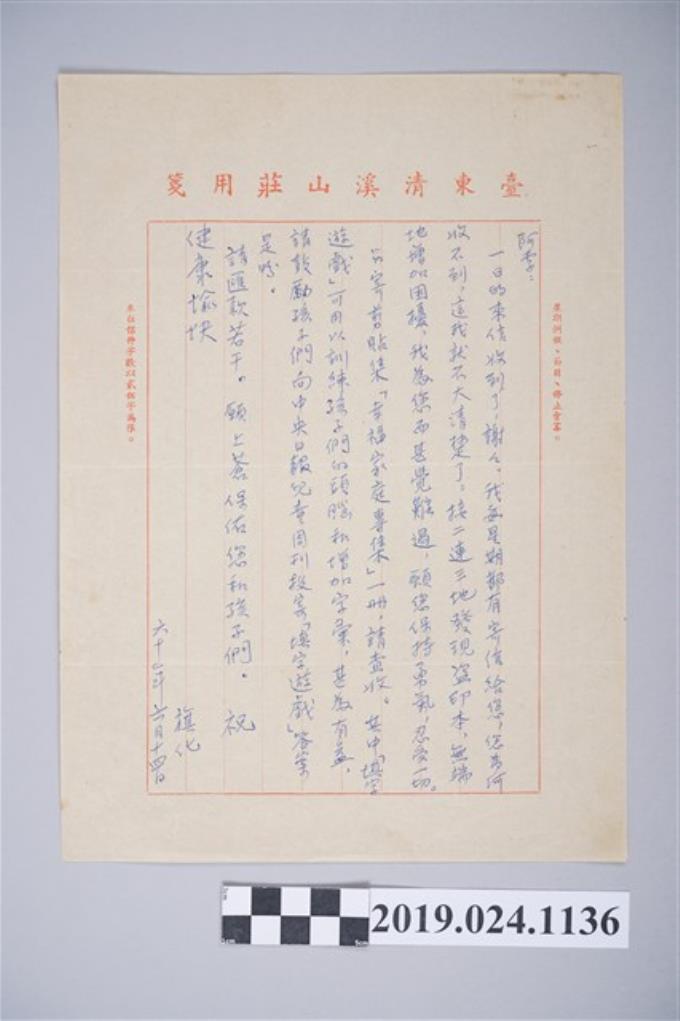 臺東清溪山莊用箋
阿李：
一日的來信收到了，謝々。我每星期都有寄信給您，您為何
收不到，這我就不大清楚了。接二連三地發現盜印本，無端
地增加困擾，我為您而甚覺難過，願您保持勇氣，忍受一切。
另寄剪貼集「幸福家庭專集」一冊，請查收。其中「填字
遊戲」可用以訓練孩子們的頭腦和增加字彙，甚為有益，
請鼓勵孩子們向中央日報兒童周刊投寄「填字遊戲」答案
是盼。
請匯款若干。願上蒼保佑您和孩子們。祝
健康愉快
旗化
六十一年六月十四日
來往信件字數以貳佰字為限。
2019.024.1136